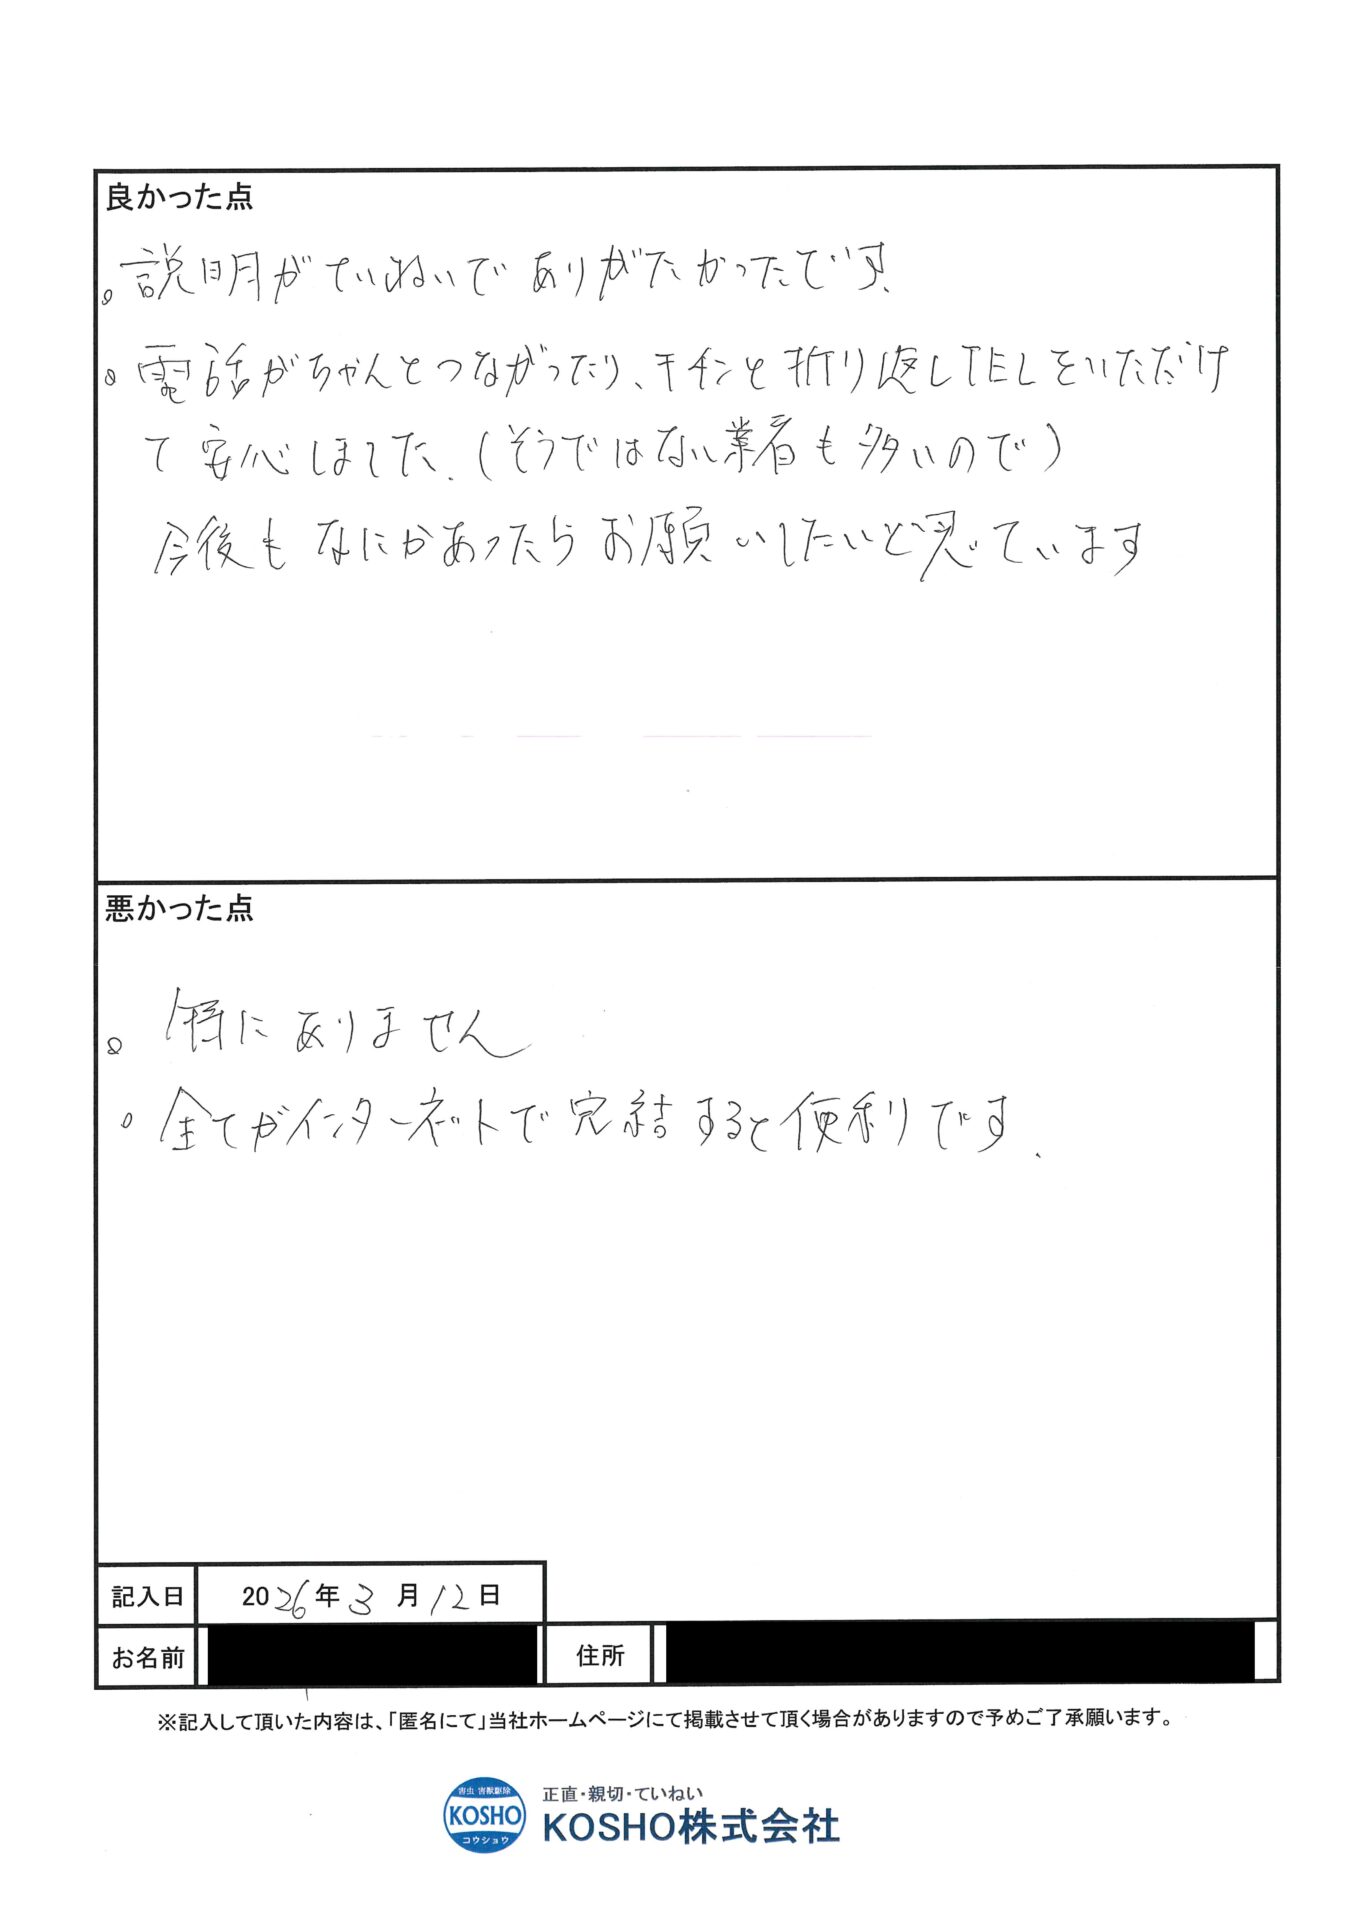 良かった点
。説明がていねいでありがたかったです.
。電話がちゃんとつながったり、キチンと折り返しTELをいただけ
て安心しました.(そうではない業者も多いので)
今後もなにかあったらお願いしたいと思ています
悪かった点
。特にありません
。全てがインターネットで完結すると便利です.
記入日 2026年3月12日
お名前 住所
※記入して頂いた内容は、「匿名にて」当社ホームページにて掲載させて頂く場合がありますので予めご了承願います。
害虫 害獣駆除
KOSHO
コウショウ
正直・親切・ていねい
KOSHO株式会社